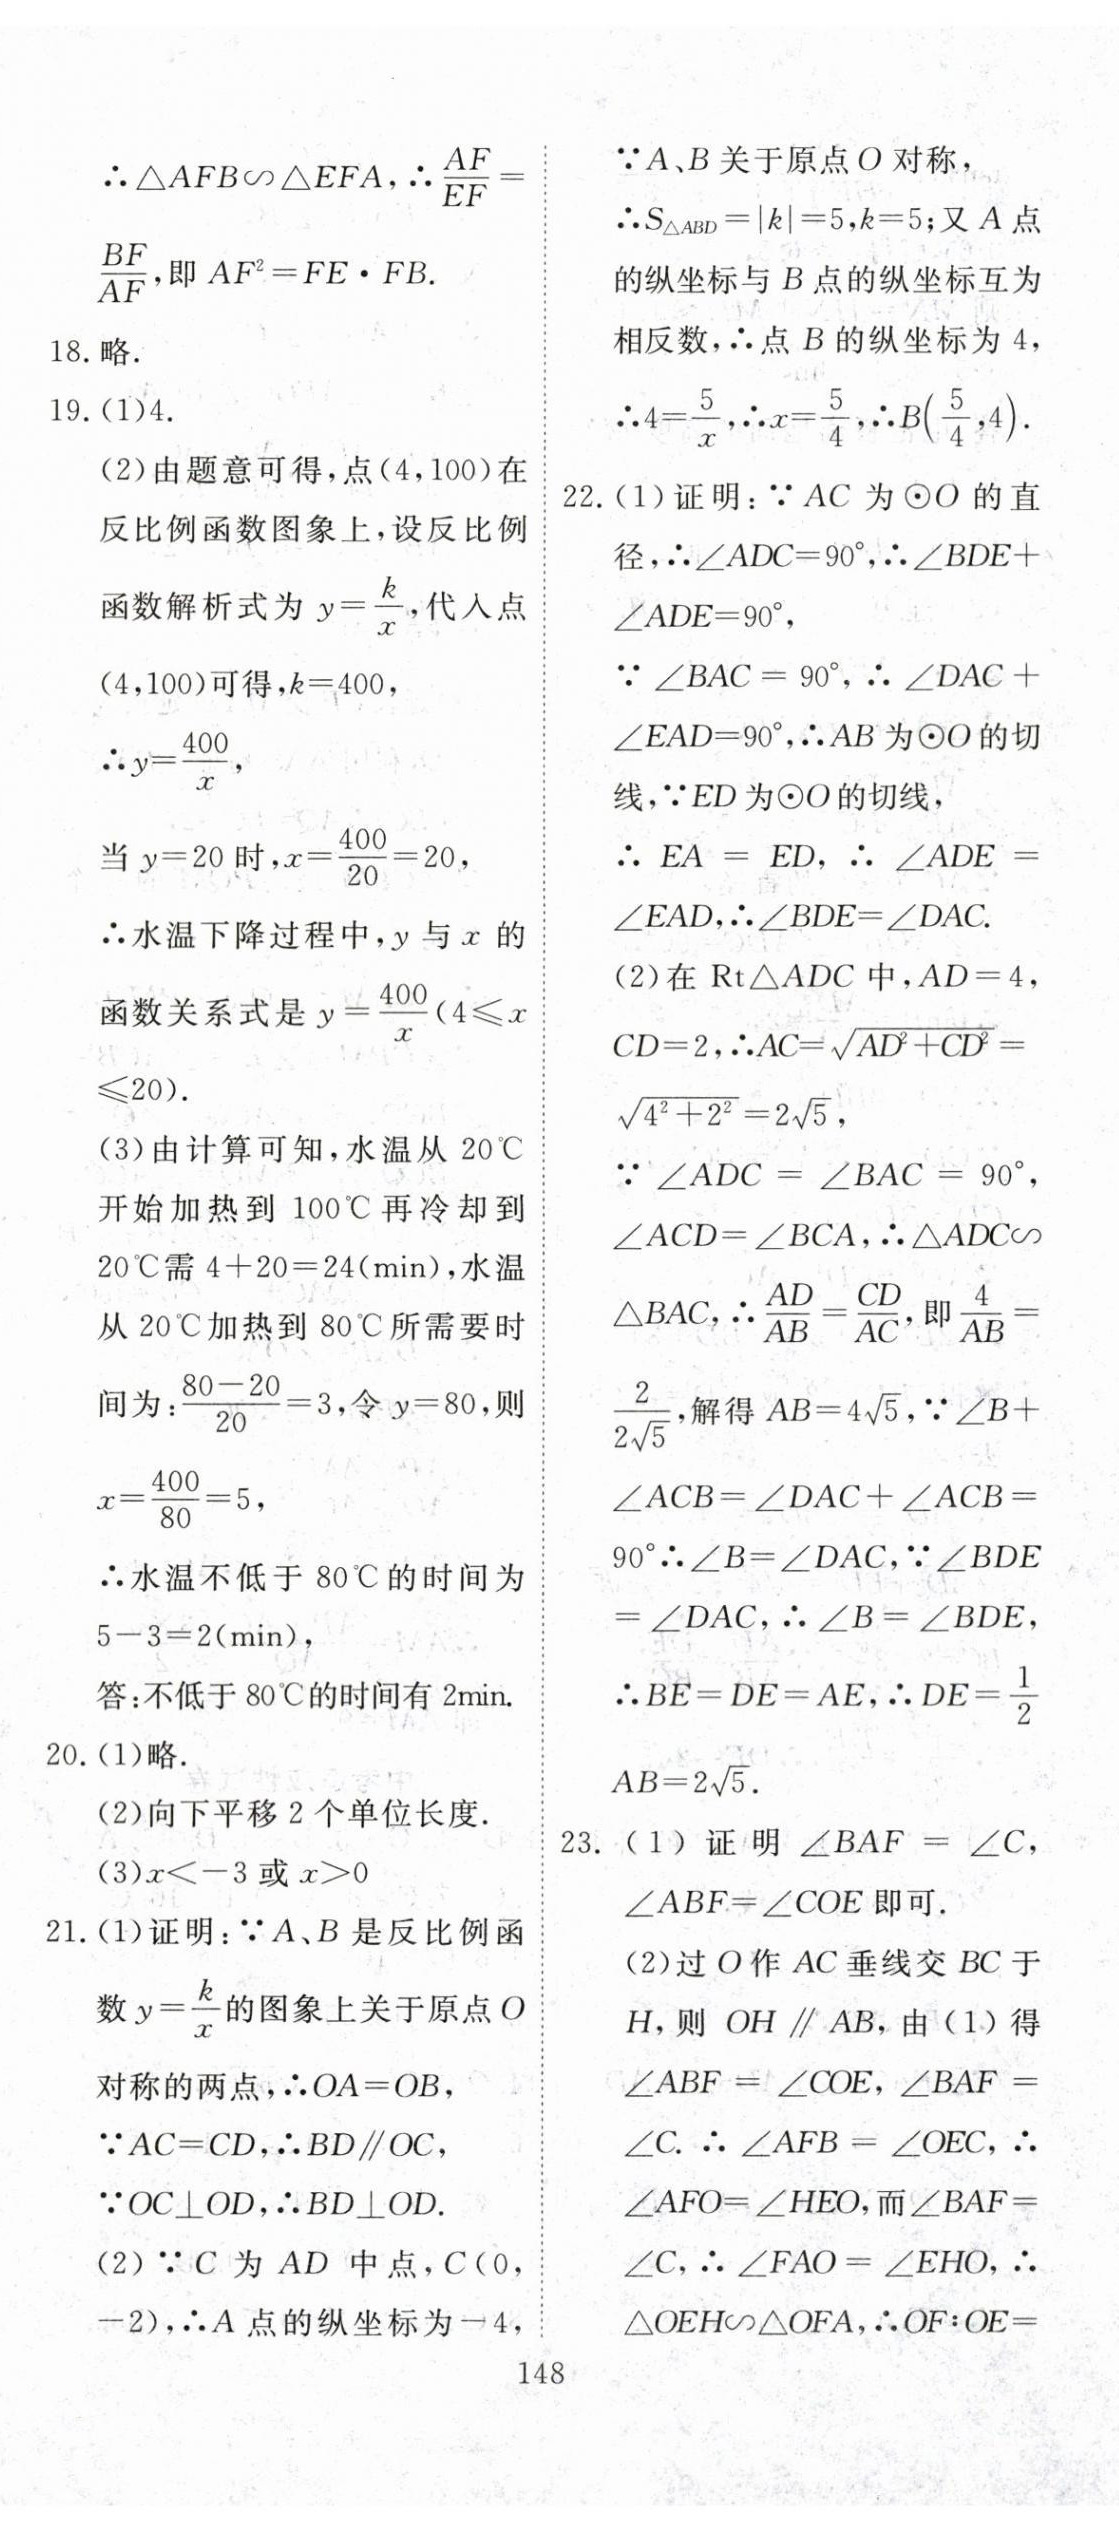 ∴△AFB∽△EFA,∴AF/EF=
BF/AF,即 AF²=FE·FB.
18. 略.
19. (1)4.
(2)由题意可得,点(4,100)在
反比例函数图象上,设反比例
函数解析式为 y=k/x,代入点
(4,100)可得,k=400,
∴y=400/x,
当 y=20 时,x=400/20=20,
∴水温下降过程中,y 与 x 的
函数关系式是 y=400/x(4≤x
≤20).
(3)由计算可知,水温从 20℃
开始加热到 100℃再冷却到
20℃需 4+20=24(min),水温
从 20℃加热到 80℃所需要时
间为:(80-20)/20=3,令 y=80,则
x=400/80=5,
∴水温不低于 80℃的时间为
5-3=2(min),
答:不低于 80℃的时间有 2min.
20. (1)略.
(2)向下平移 2 个单位长度.
(3)x<-3 或 x>0
21. (1)证明:∵A、B 是反比例函
数 y=k/x的图象上关于原点 O
对称的两点,∴OA=OB,
∵AC=CD,∴BD∥OC,
∵OC⊥OD,∴BD⊥OD.
(2)∵C 为 AD 中点,C(0,
-2),∴A 点的纵坐标为-4,
∵A、B 关于原点 O 对称,
∴S△ABD=|k|=5,k=5;又 A 点
的纵坐标与 B 点的纵坐标互为
相反数,∴点 B 的纵坐标为 4,
∴4=5/x,∴x=5/4,∴B(5/4,4).
22. (1)证明:∵AC 为⊙O 的直
径,∴∠ADC=90°,∴∠BDE+
∠ADE=90°,
∵∠BAC=90°,∴∠DAC+
∠EAD=90°,∴AB 为⊙O 的切
线,∵ED 为⊙O 的切线,
∴EA=ED,∴∠ADE=
∠EAD,∴∠BDE=∠DAC.
(2)在 Rt△ADC 中,AD=4,
CD=2,∴AC=√(AD²+CD²)=
√(4²+2²)=2√5,
∵∠ADC=∠BAC=90°,
∠ACD=∠BCA,∴△ADC∽
△BAC,∴AD/AB=CD/AC,即 4/AB=
2/(2√5),解得 AB=4√5,∵∠B+
∠ACB=∠DAC+∠ACB=
90°∴∠B=∠DAC,∵∠BDE
=∠DAC,∴∠B=∠BDE,
∴BE=DE=AE,∴DE=1/2
AB=2√5.
23. (1)证明∠BAF=∠C,
∠ABF=∠COE 即可.
(2)过 O 作 AC 垂线交 BC 于
H,则 OH∥AB,由(1)得
∠ABF=∠COE,∠BAF=
∠C.∴∠AFB=∠OEC,∴
∠AFO=∠HEO,而∠BAF=
∠C,∴∠FAO=∠EHO,∴
△OEH∽△OFA,∴OF∶OE=
148